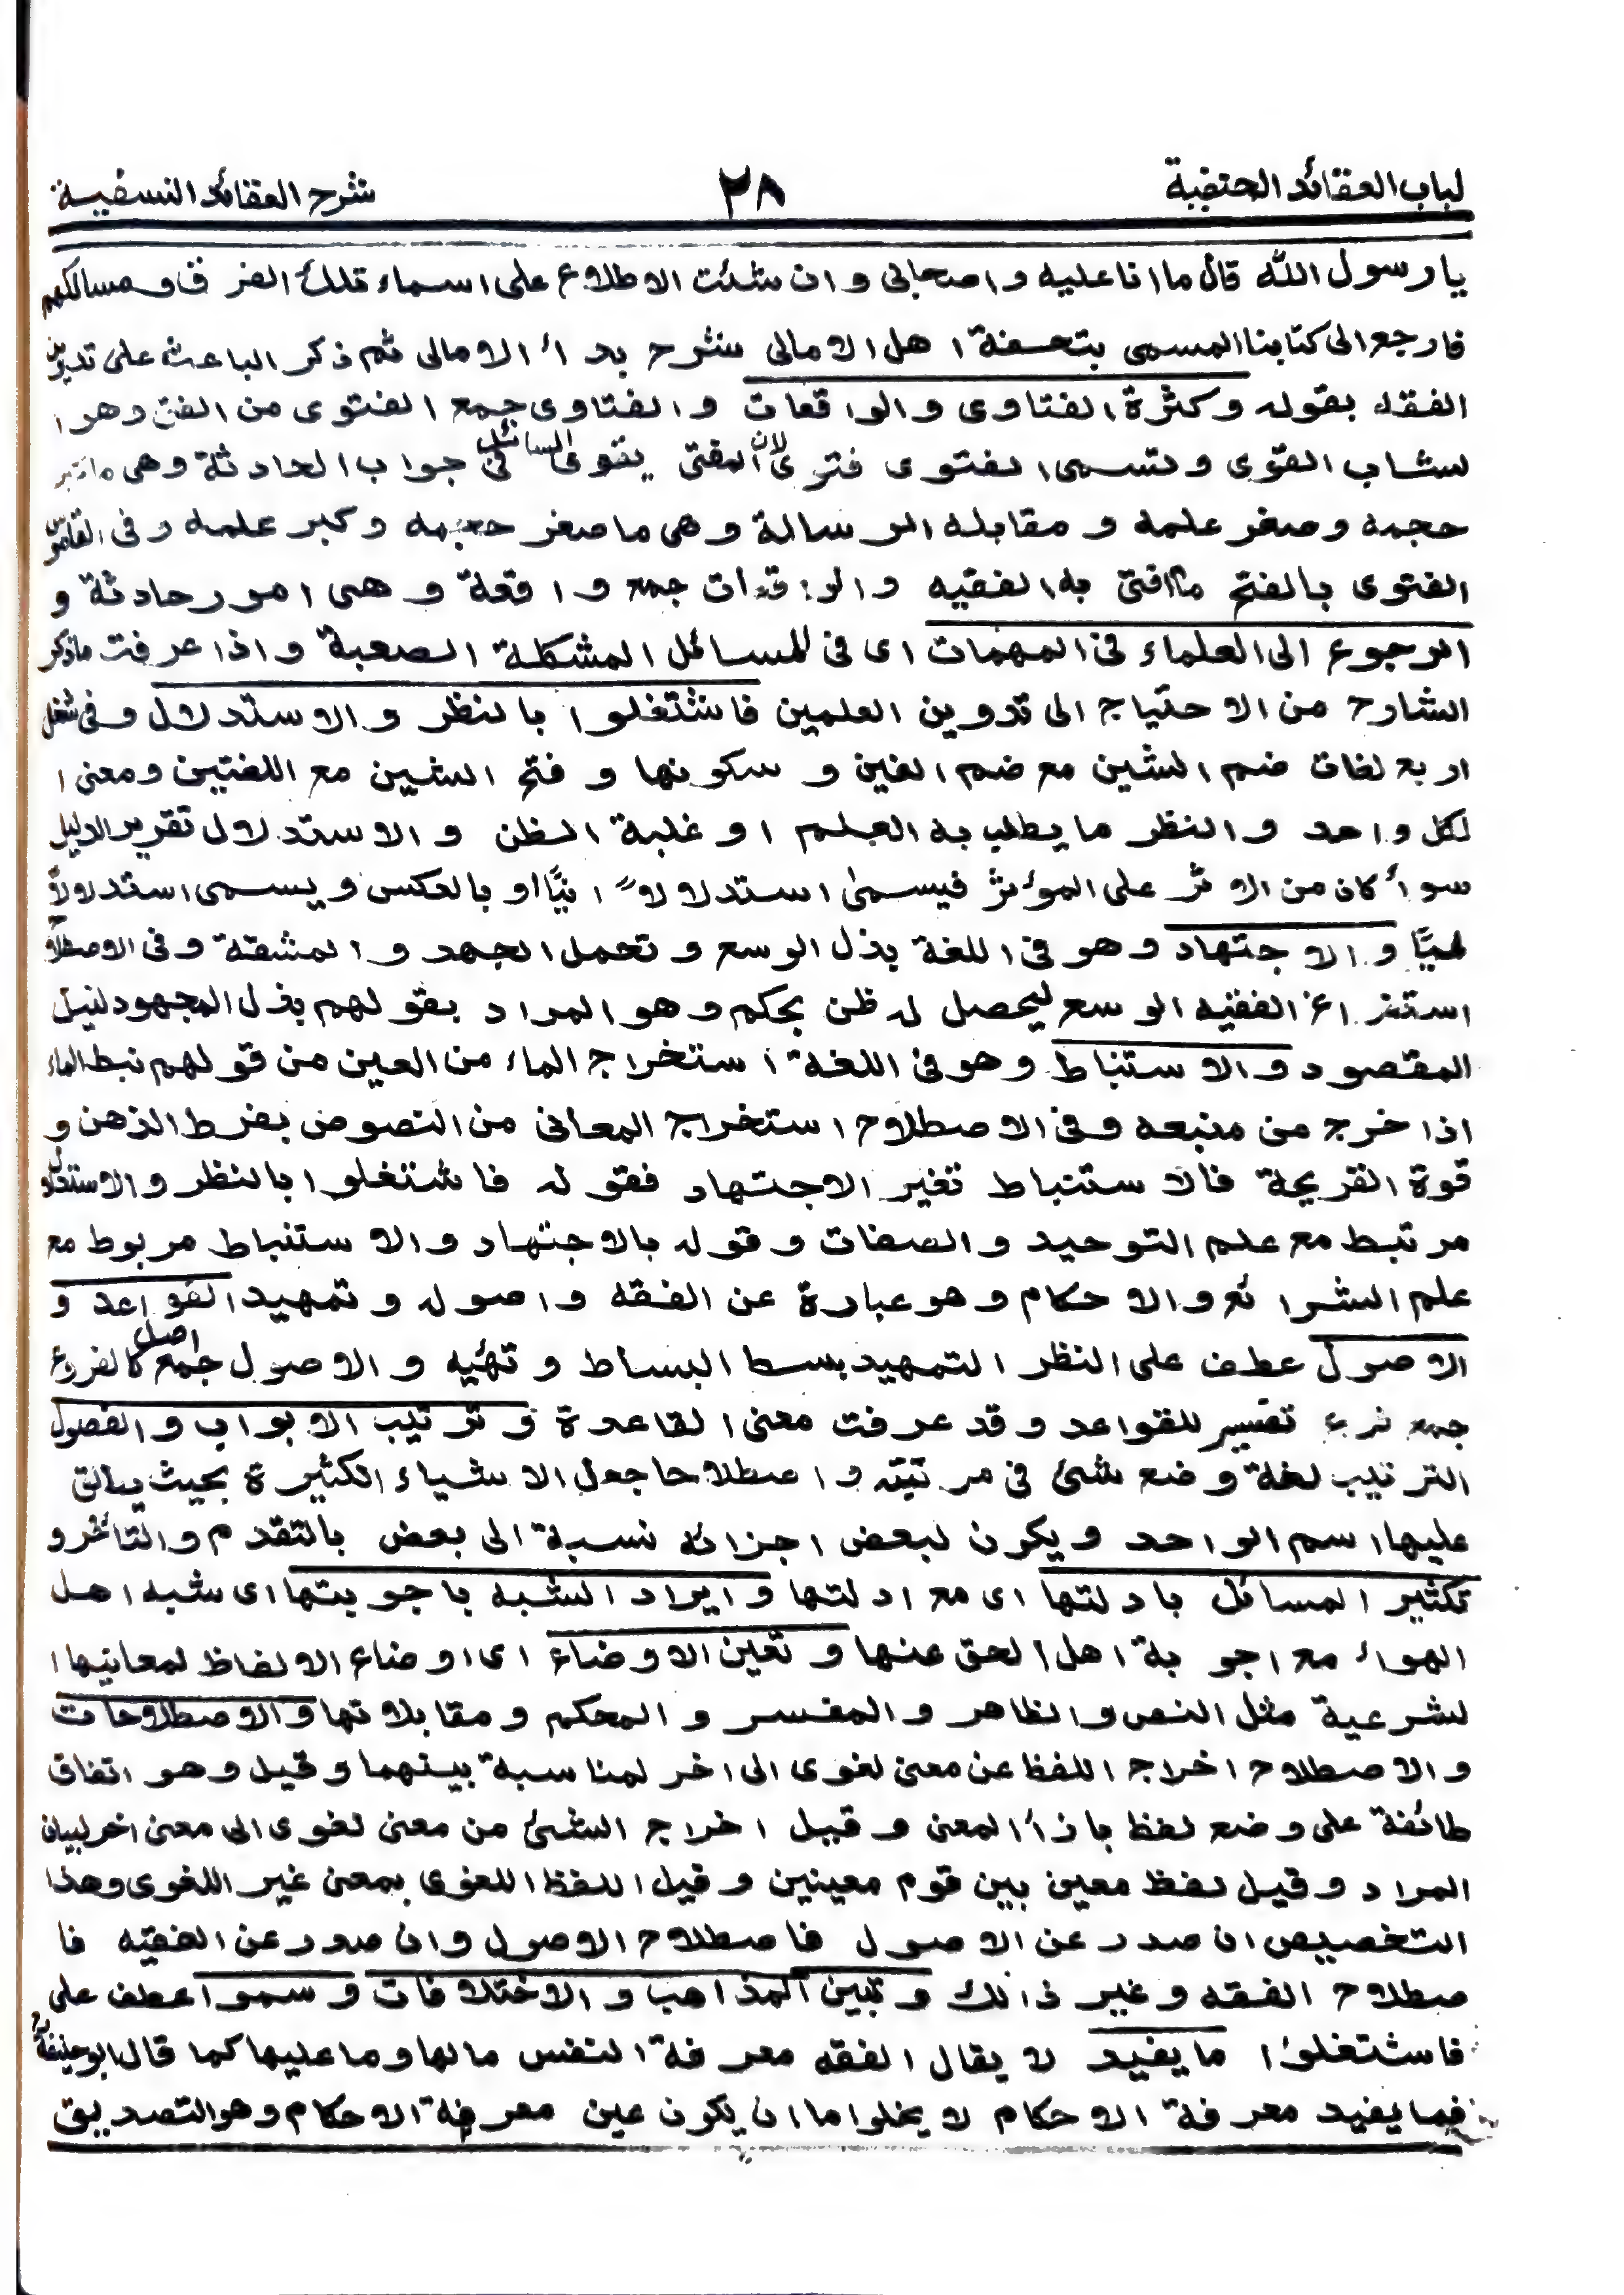 لباب العقائد الحنفية ٢٨ شرح العقائد النسفية
يا رسول الله قال ما انا عليه واصحابى وان شئت الاطلاع على اسماء تلك الفرق ومسالكهم
فارجع الى كتابنا المسمى بتحفة اهل الامالى بشرح بدأ الامالى ثم ذكر الباعث على تدوين
الفقه بقوله وكثرة الفتاوى والواقعات والفتاوى جمع الفتوى من الفتى وهو ا
لشاب القوى وتسمى الفتوى فتوى لان المفتى يقوى السائل فى جواب الحادثة وهى ما كبر
حجمه وصغر علمه ومقابله الرسالة وهى ما صغر حجمه وكبر علمه وفى القاموس
الفتوى بالفتح ما افتى به الفقيه والواقعات جمع واقعة وهى امور حادثة و
الرجوع الى العلماء فى المهمات اى فى المسائل المشكلة الصعبة واذا عرفت ما ذكر
الشارح من الاحتياج الى تدوين العلمين فاشتغلوا بالنظر والاستدلال وفى شغل
اربع لغات ضم الشين مع ضم الغين وسكونها وفتح الشين مع اللغتين ومعنى ا
لكل واحد والنظر ما يطلب به العلم او غلبة الظن والاستدلال تقرير الدليل
سوأ كان من الاثر على المؤثر فيسمى استدلالاً انيًّا او بالعكس ويسمى استدلالاً
لميًّا والاجتهاد وهو فى اللغة بذل الوسع وتحمل الجهد والمشقة وفى الاصطلاح
استفراغ الفقيه الوسع ليحصل له ظن بحكم وهو المراد بقولهم بذل المجهود لنيل
المقصود والاستنباط وهو فى اللغة استخراج الماء من العين من قولهم نبط الماء
اذا خرج من منبعه وفى الاصطلاح استخراج المعانى من النصوص بفرط الذهن و
قوة القريحة فالاستنباط تغير الاجتهاد فقوله فاشتغلوا بالنظر والاستدلال
مرتبط مع علم التوحيد والصفات وقوله بالاجتهاد والاستنباط مربوط مع
علم الشرائع والاحكام وهو عبارة عن الفقه واصوله وتمهيد القواعد و
الاصول عطف على النظر التمهيد بسط البساط وتهئيه والاصول جمع اصل كالفروع
جمع فرع تفسير للقواعد وقد عرفت معنى القاعدة وترتيب الابواب والفصول
الترتيب لغة وضع شئ فى مرتبته واصطلاحا جعل الاشياء الكثيرة بحيث يطلق
عليها اسم الواحد ويكون لبعض اجزائه نسبة الى بعض بالتقدم والتأخر و
تكثير المسائل بادلتها اى مع ادلتها وايراد الشبه باجوبتها اى شبه اهل
الهواء مع اجوبة اهل الحق عنها وتعين الاوضاع اى اوضاع الالفاظ لمعانيها ا
لشرعية مثل النص والظاهر والمفسر والمحكم ومقابلاتها والاصطلاحات
والاصطلاح اخراج اللفظ عن معنى لغوى الى اخر لمناسبة بينهما وقيل وهو اتفاق
طائفة على وضع لفظ بازأ المعنى وقيل اخراج الشئ من معنى لغوى الى معنى اخر لبيان
المراد وقيل لفظ معين بين قوم معينين وقيل اللفظ اللغوى بمعنى غير اللغوى وهذا
التخصيص ان صدر عن الاصول فاصطلاح الاصول وان صدر عن الفقيه فا
صطلاح الفقه وغير ذالك وتبين المذاهب والاختلافات وسموا عطف على
فاشتغلوا ما يفيد لا يقال الفقه معرفة النفس مالها وما عليها كما قال ابو حنيفة
فما يفيد معرفة الاحكام لا يخلوا ما ان يكون عين معرفة الاحكام وهو التصديق